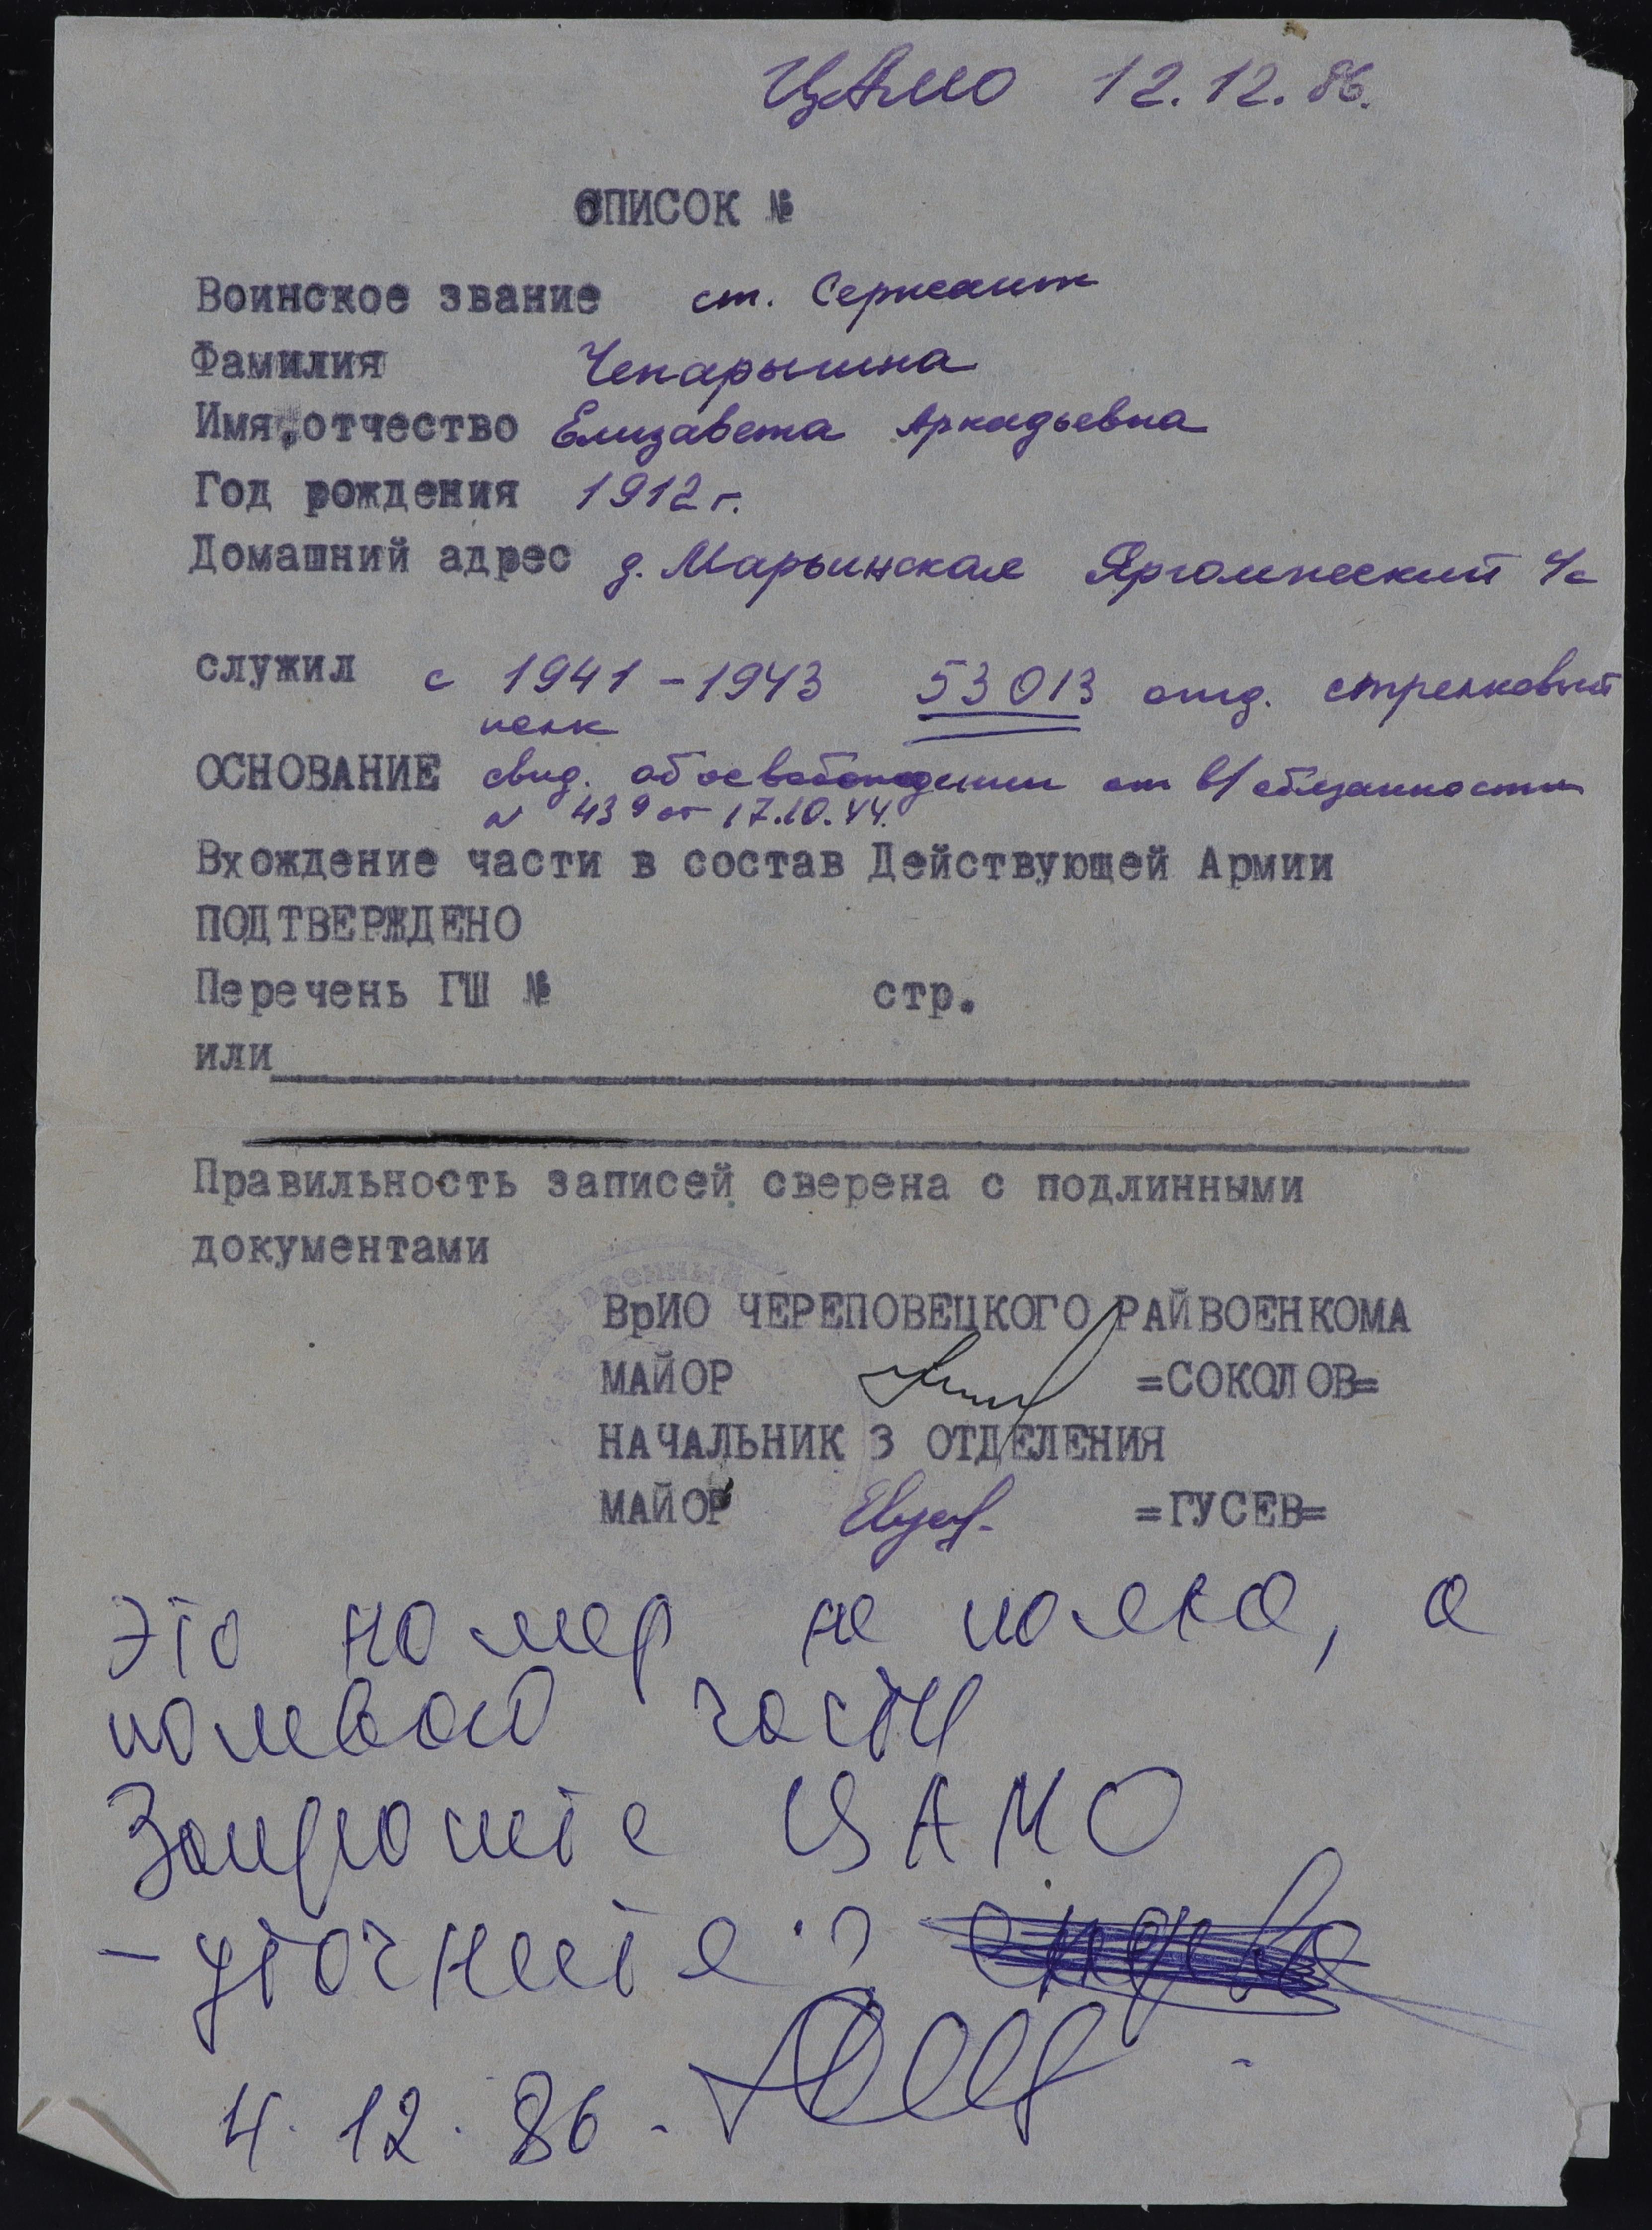 ЦАМО 12.12.86.
СПИСОК №
Воинское звание ст. Сержант
Фамилия Чепарышна
Имя, отчество Елизавета Аркадьевна
Год рождения 1912 г.
Домашний адрес д. Марьинская Яргомжский с/с
служил с 1941 - 1943 53013 отд. стрелковый
полк
ОСНОВАНИЕ свид. об освобождении от в/обязанности
№ 439 от 17.10.44.
Вхождение части в состав Действующей Армии
ПОДТВЕРЖДЕНО
Перечень ГШ № стр.
или
Правильность записей сверена с подлинными
документами
ВрИО ЧЕРЕПОВЕЦКОГО РАЙВОЕНКОМА
МАЙОР =СОКОЛОВ=
НАЧАЛЬНИК 3 ОТДЕЛЕНИЯ
МАЙОР =ГУСЕВ=
Это номер не полка, а
полевой части
Запросите ЦАМО
- уточните :
4. 12. 86.